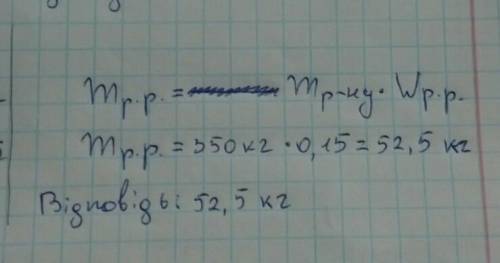 mр.р. = mр-ну · Wр.р.
mр.р. = 350 кг · 0,15 = 52,5 кг
Відповідь: 52,5 кг